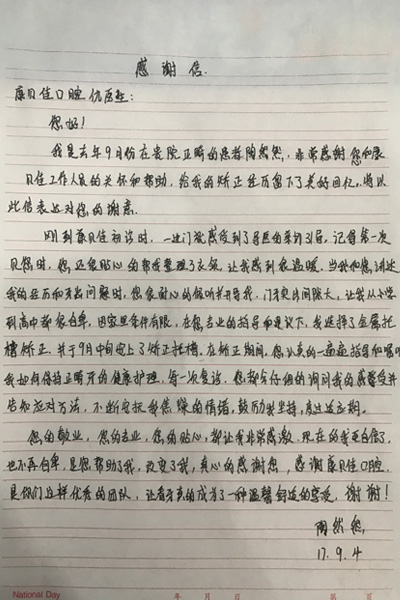 感谢信.
康贝佳口腔伍医生:
您好!
我是去年9月份在贵院正畸的患者陶然然,非常感谢您和康
贝佳工作人员的关怀和帮助,给我的矫正经历留下了美好回忆,特以
此信表达对您的谢意.
刚到康贝佳初诊时,一进门就感受到了导医的亲切引导,记得第一次
见您时,您还很贴心的帮我整理了衣领,让我感到很温暖,当我和您讲述
我的经历和牙齿问题时,您很耐心的倾听并开导我,门牙夹缝间隙大,让我从小学
到高中都很自卑,因家里条件有限,在您专业的指导和建议下,我选择了金属托
槽矫正.并于9月中旬安上了矫正托槽,在矫正期间,您认真的一遍遍指导和嘱咐
我如何保持正畸牙的健康护理,每一次复诊,您都会仔细的询问我的感受并
告知应对方法,不断安抚我焦躁的情绪,鼓励我坚持,度过适应期.
您的敬业,您的专业,您的贴心,都让我非常感激,现在的我更自信了,
也不再自卑,是您帮助了我,改变了我,真心的感谢您,感谢康贝佳口腔,
是你们这样优秀的团队,让看牙真的成为了一种温馨舒适的享受,谢谢!
陶然然
17.9.4
National Day
年 月 日
第 页